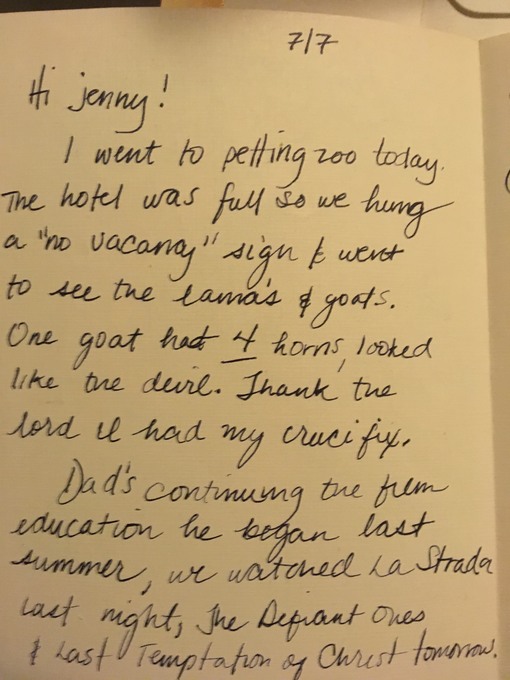 7/7
Hi jenny!
I went to petting zoo today.
The hotel was full so we hung
a "no vacancy" sign & went
to see the lama's & goats.
One goat had 4 horns, looked
like the devil. Thank the
lord I had my crucifix.
Dad's continuing the film
education he began last
summer, we watched La Strada
last night, The Defiant Ones
& Last Temptation of Christ tomorrow.